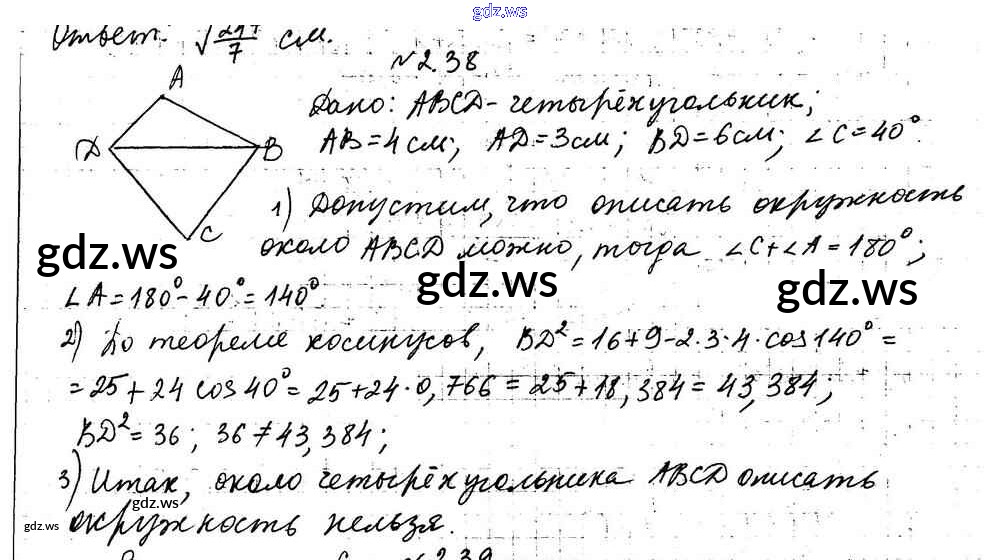 gdz.ws
Ответ: см.
№2.38
A
Дано: ABCD - четырёхугольник;
AB = 4 см; AD = 3 см; BD = 6 см; ∠C = 40°.
D
B
C
1) Допустим, что описать окружность
около ABCD можно, тогда ∠C + ∠A = 180°;
gdz.ws gdz.ws gdz.ws
∠A = 180° - 40° = 140°.
2) По теореме косинусов, BD² = 16 + 9 - 2·3·4·cos 140° =
= 25 + 24 cos 40° = 25 + 24·0,766 = 25 + 18,384 = 43,384;
BD² = 36; 36 ≠ 43,384;
3) Итак, около четырёхугольника ABCD описать
gdz.ws
окружность нельзя.
gdz.ws
gdz.ws
№2.39